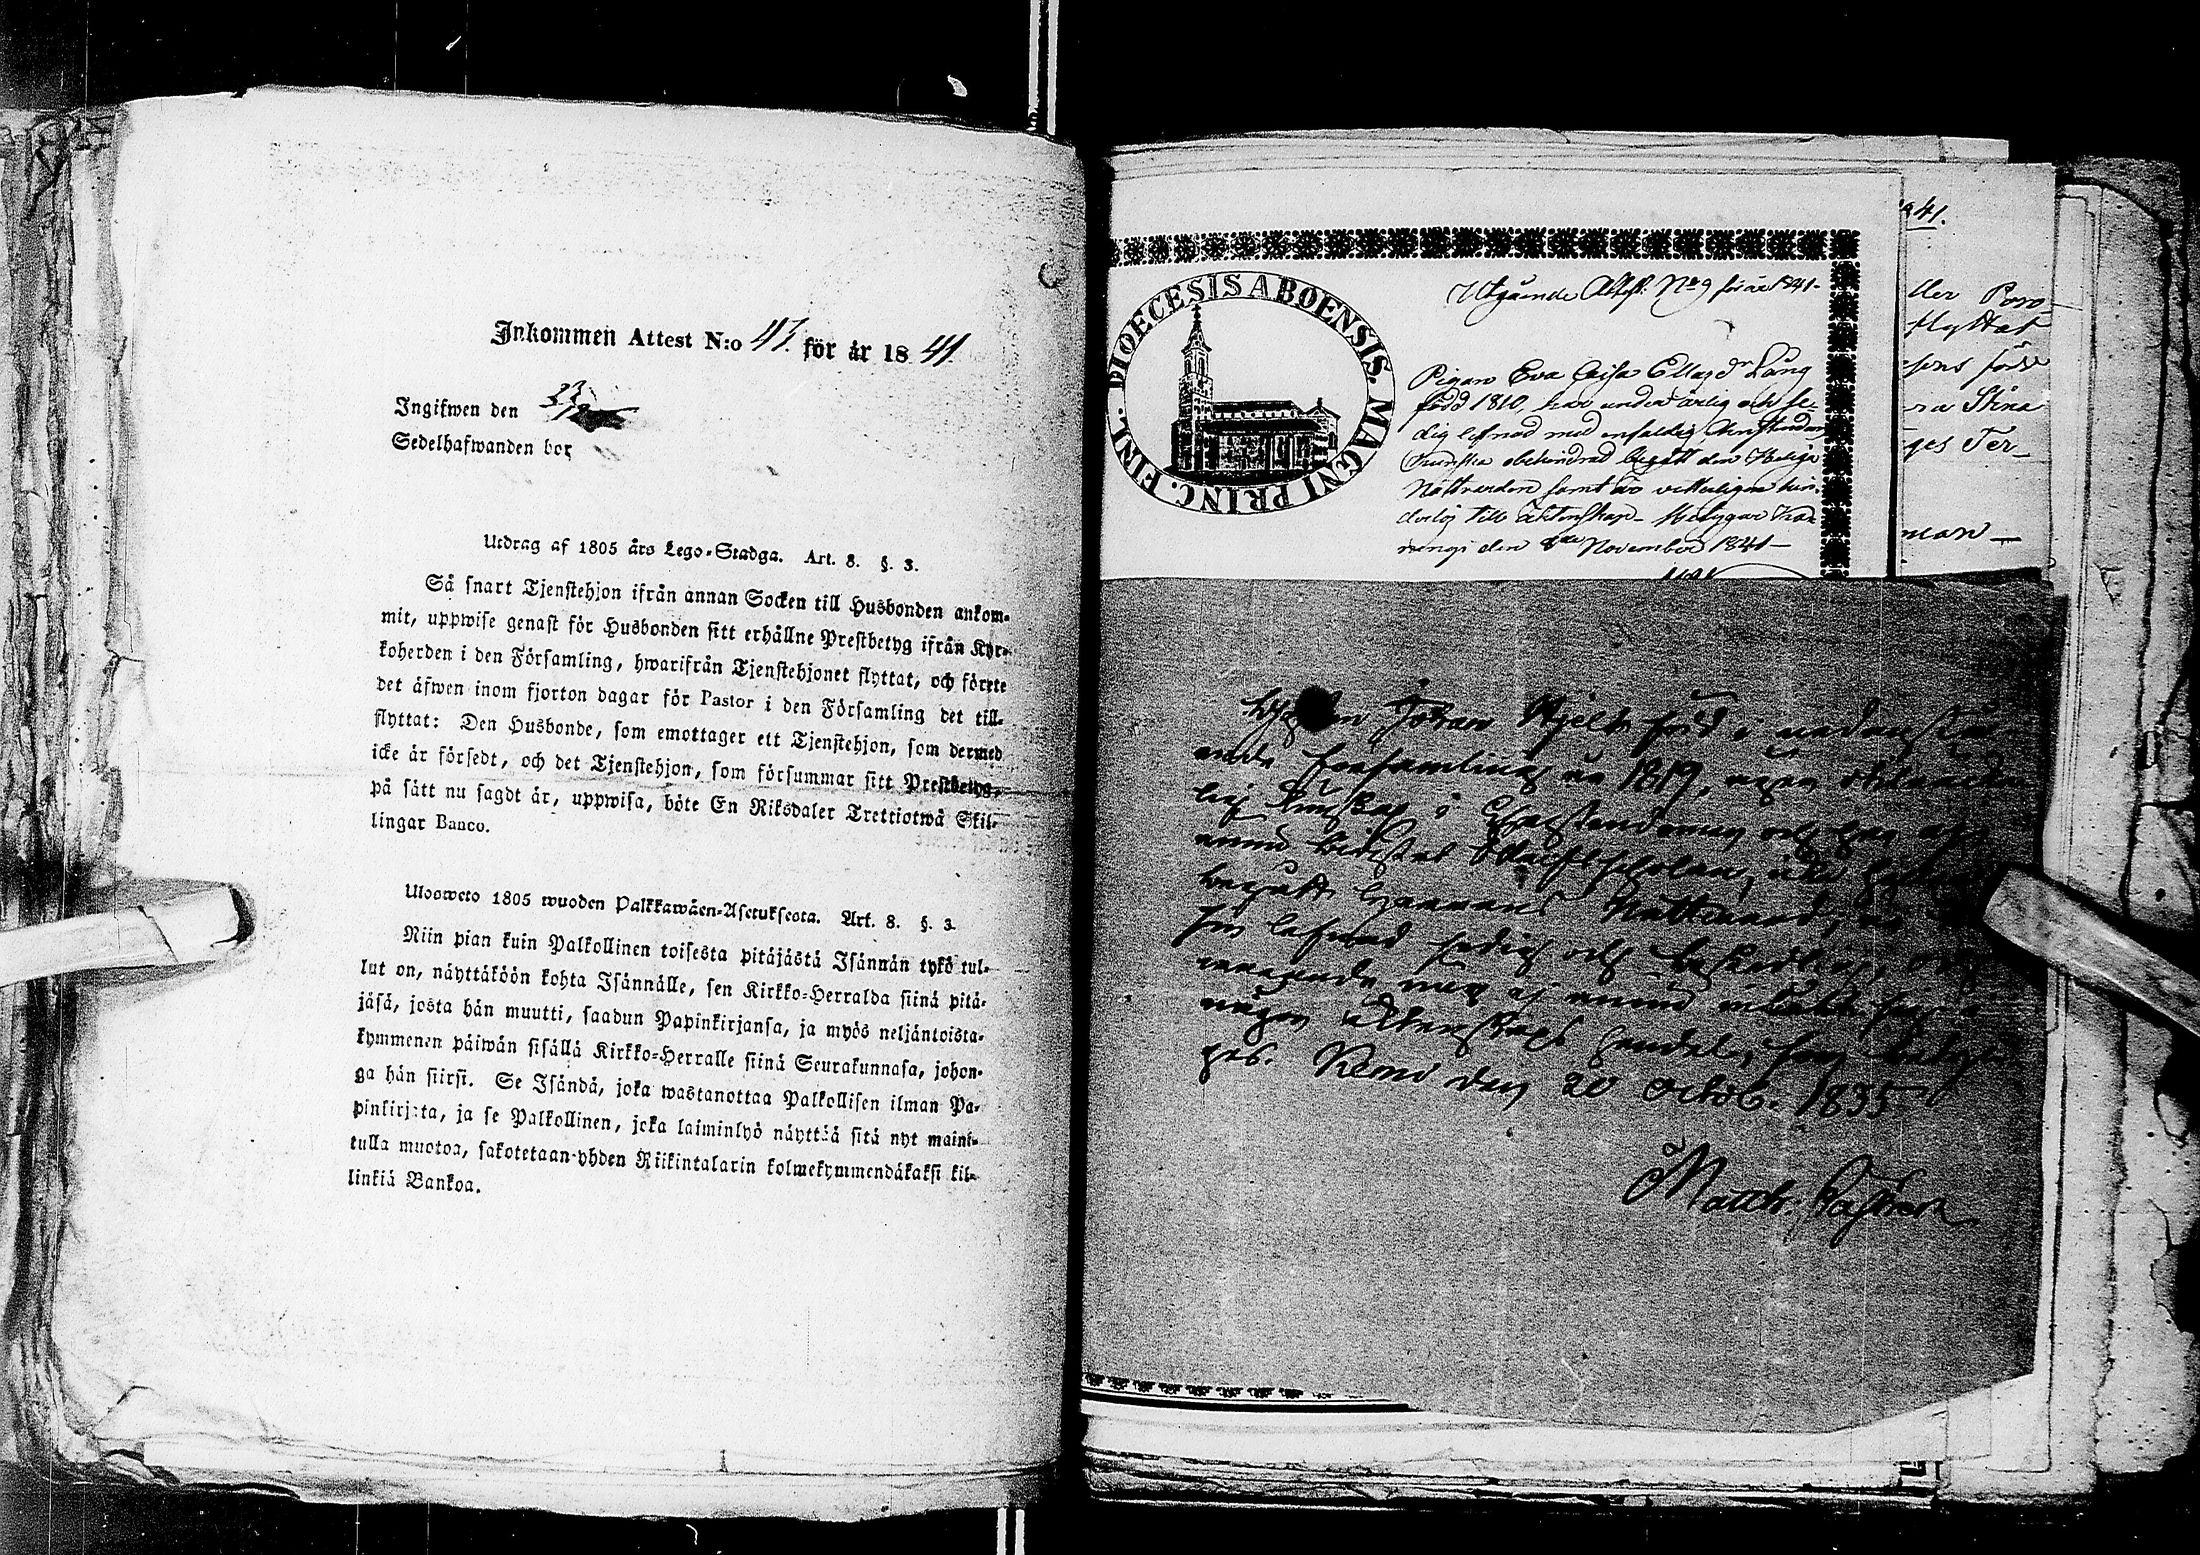 Inkommen Attest N:o 47. för år 1841.
Ingifwen den 23/12
Sedelhafwanden bor
Utdrag af 1805 års Lego-Stadga. Art. 8. §. 3.
Så snart Tjenstehjon ifrån annan Socken till Husbonden ankom-
mit, uppwise genast för Husbonden sitt erhållne Prestbetyg ifrån Kyr-
koherden i den Församling, hwarifrån Tjenstehjonet flyttat, och förete
det äfwen inom fjorton dagar för Pastor i den Församling det till-
flyttat: Den Husbonde, som emottager ett Tjenstehjon, som dermed
icke är försedt, och det Tjenstehjon, som försummar sitt Prestbetyg,
på sätt nu sagdt är, uppwisa, böte En Riksdaler Trettiotwå Skil-
lingar Banco.
Ulosweto 1805 wuoden Palkkawäen-Asetuksesta. Art. 8. §. 3.
Niin pian kuin Palkollinen toisesta pitäjästä Isännän tykö tul-
lut on, näyttäköön kohta Isännälle, sen Kirkko-Herralda siinä pitä-
jäsä, josta hän muutti, saadun Papinkirjansa, ja myös neljäntoista-
kymmenen päiwän sisällä Kirkko-Herralle siinä Seurakunnasa, johon-
ga hän siirsi. Se Isändä, joka wastanottaa Palkollisen ilman Pa-
pinkirjata, ja se Palkollinen, joka laiminlyö näyttää sitä nyt maini-
tulla muotoa, sakotetaan yhden Riikintalarin kolmekymmendäkaksi kil-
linkiä Bankoa.
DIOECESIS ABOENSIS. MAGNI PRINC. FINL.
Utgående Attest. No 9 för år 1841-
Pigan Eva Caisa Ellasdr Lång
född 1810, har under ärlig och se-
dig lefnad med enfaldig Christendoms
Kunskap obehindrad begått den Heliga
Nattvarden samt är vetterligen hin-
derlös till Äktenskap-
den 8de November 1841-
41.
ller Poro-
flyttat
sons född
ra Stina
ges Ter-
man-
Johan Hjelt född i nedanstå-
ende församling år 1819, eger
lig kunskap i Christendomen och har
Nattvard,
lefnad sedig och beskedlig,
någon äktenskaps handel,
ges. Kemi den 20 Octob. 1835
Matth. Castrén